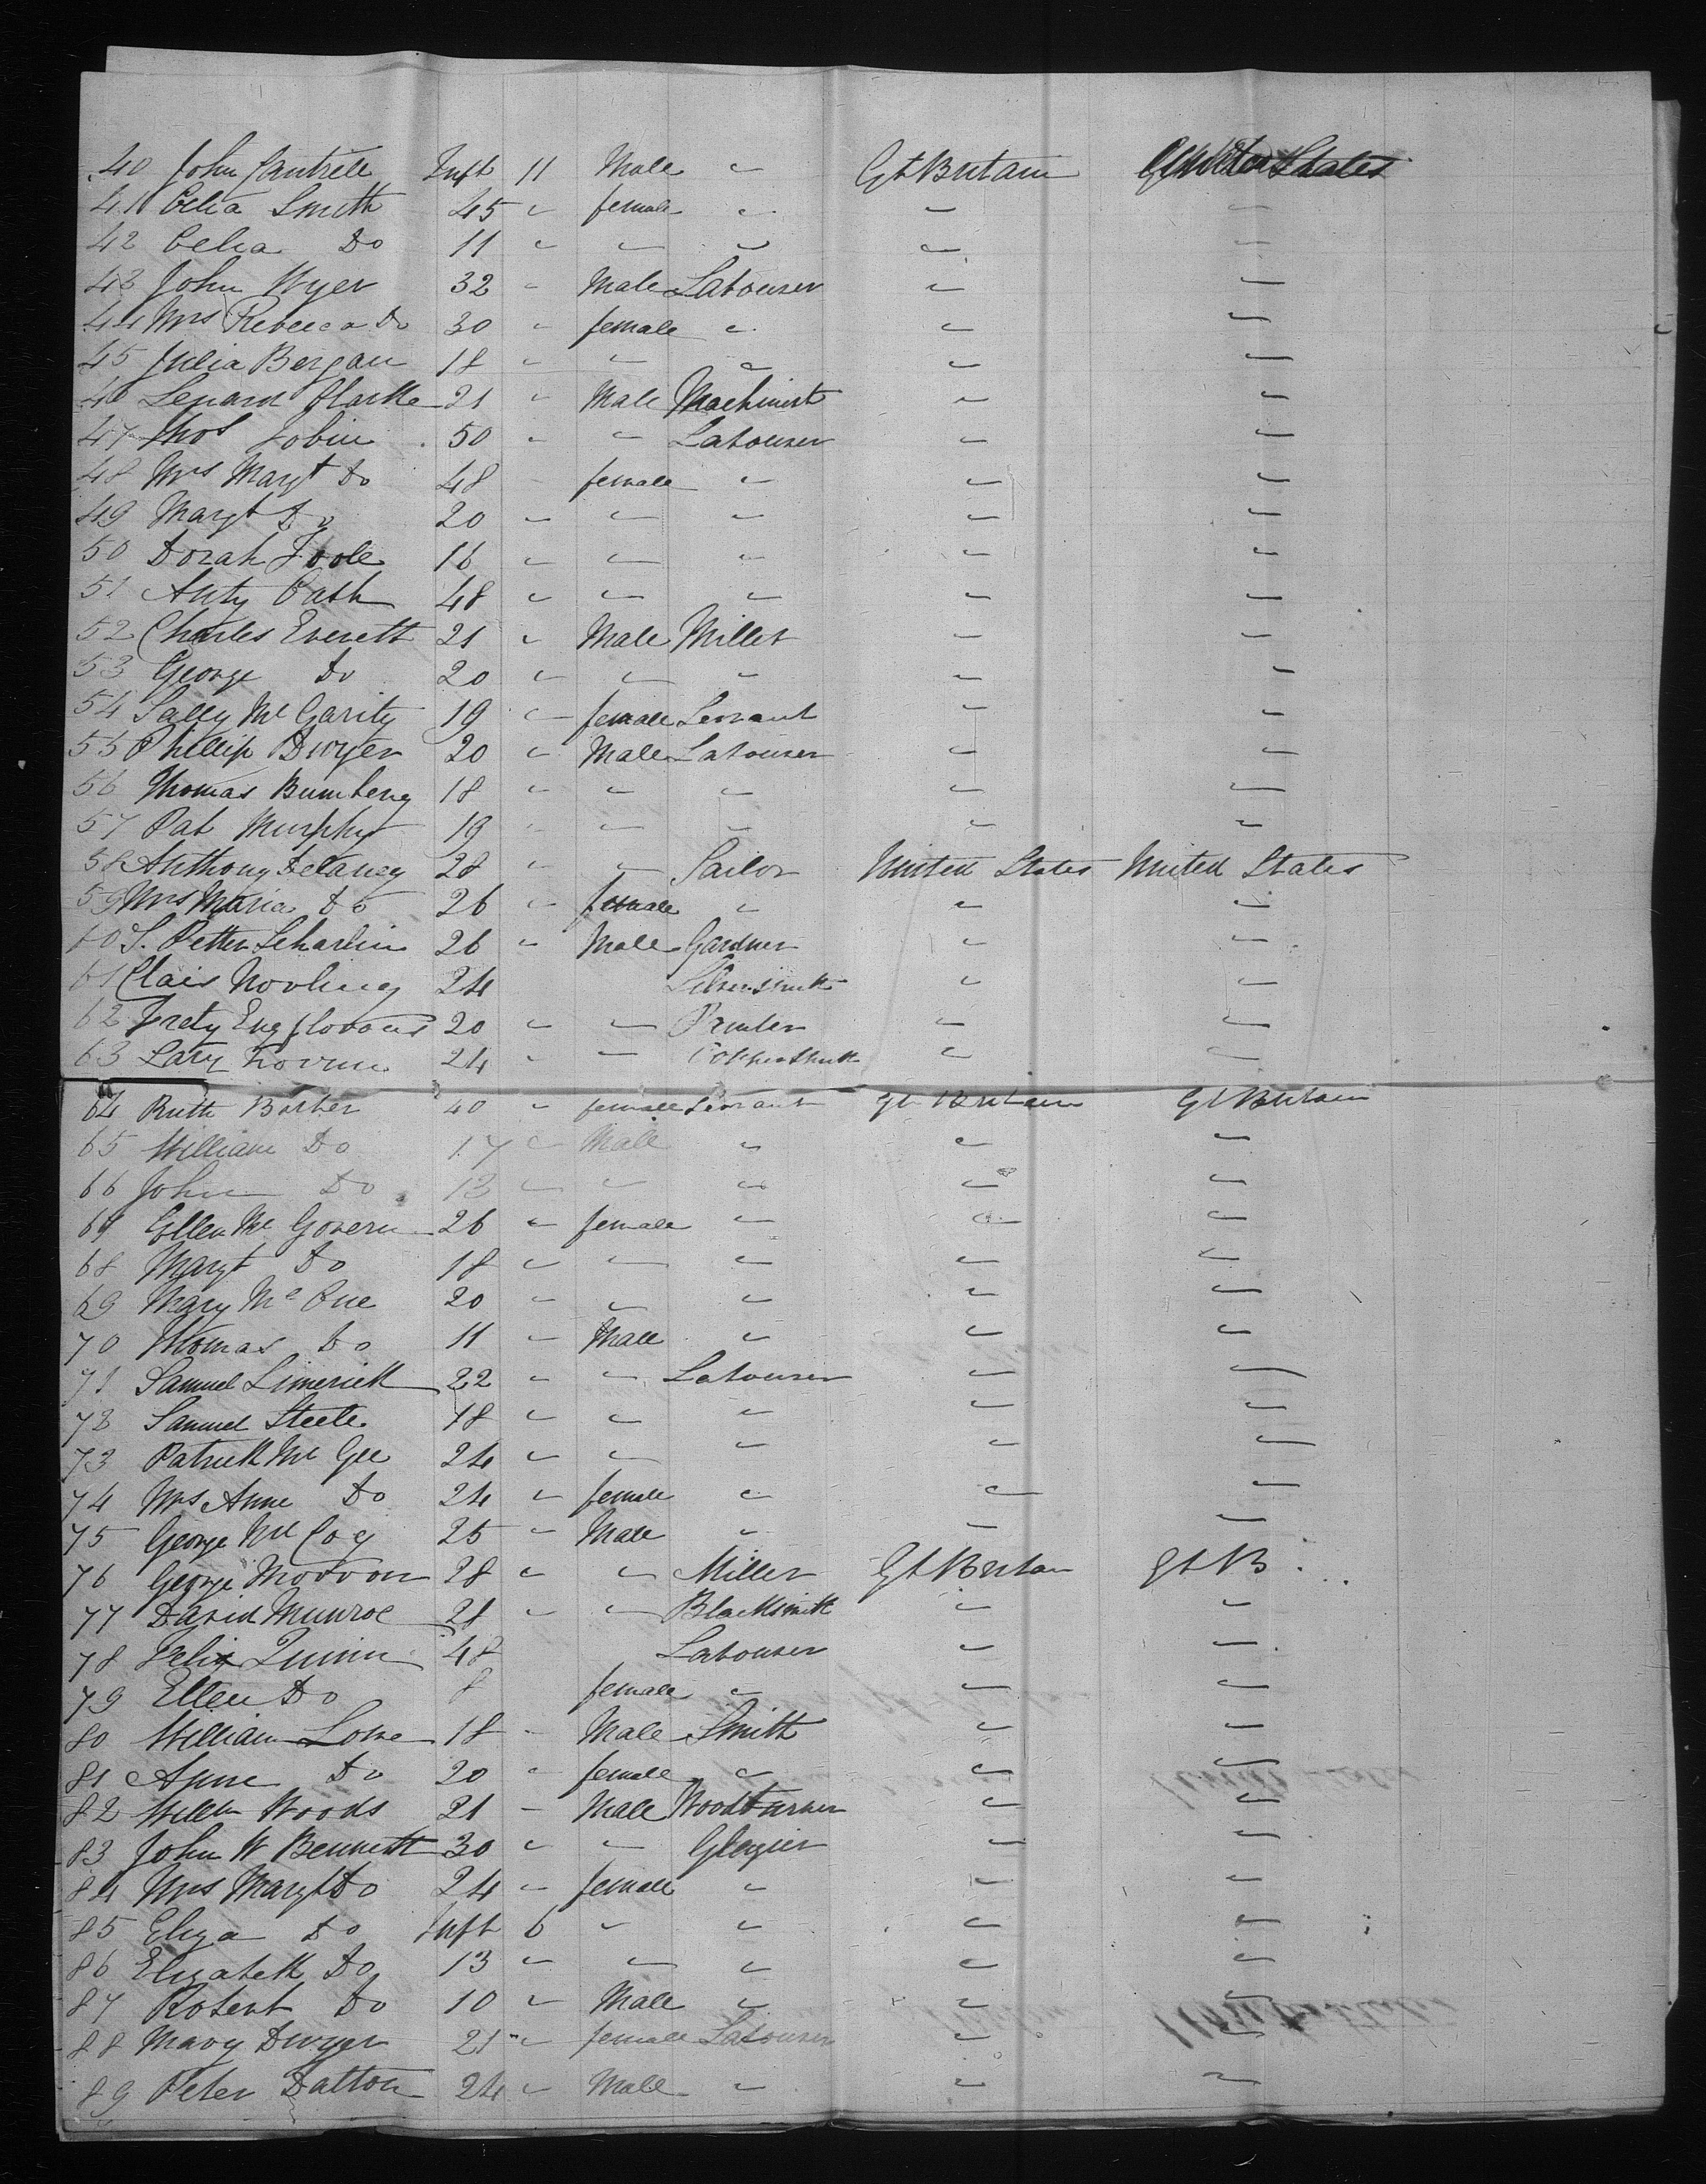 40 John Cantrell Inft 11 Male " Gt Britain United States
41 Celia Smith 45 " female " " "
42 Celia Do 11 " " " " "
43 John Wyer 32 " Male Labourer " "
44 Mrs Rebecca Do 30 " female " " "
45 Julia Bergan 18 " " " " "
46 Lenard Clarke 21 " Male Machinist " "
47 Thos Tobin 50 " " Labourer " "
48 Mrs Margt Do 48 " female " " "
49 Margt Do 20 " " " " "
50 Dorah Toole 16 " " " " "
51 Anty Cash 48 " " " " "
52 Charles Everett 21 " Male Miller " "
53 George Do 20 " " " " "
54 Sally Mc Garity 19 " female Servant " "
55 Phillip Dwyer 20 " Male Labourer " "
56 Thomas 18 " " " " "
57 Pat Murphy 19 " " " " "
58 Anthony Delaney 28 " " Sailor United States United States
59 Mrs Maria Do 26 " female " " "
60 S. Petter Scharlin 26 " Male Gardner " "
61 Clais 24 Silversmith " "
62 20 " " Printer " "
63 Lary 24 " " Coppersmith " "
64 Ruth Barber 40 " female Servant Gt Britain Gt Britain
65 William Do 17 " Male " " "
66 John Do 13 " " " " "
67 Ellen Mc Govern 26 " female " " "
68 Margt Do 18 " " " " "
69 Mary Mc Cue 20 " " " " "
70 Thomas Do 11 " Male " " "
71 Samuel Limerick 22 " " Labourer " "
72 Samuel Steele 18 " " " " "
73 Patrick Mc Gee 24 " " " " "
74 Mrs Anne Do 24 " female " " "
75 George Mc Coy 25 " Male " " "
76 George 28 " " Miller Gt Britan Gt B
77 David Munroe 21 " " Blacksmith " "
78 Felix Quinn 48 Labourer " "
79 Ellen Do 8 female " " "
80 William Lowe 18 " Male Smith " "
81 Anne Do 20 " female " " "
82 Willm Woods 21 " Male Woodturner " "
83 John W Bennett 30 " " Glazier " "
84 Mrs Margt Do 24 " female " " "
85 Eliza Do Inft 6 " " " "
86 Elizabeth Do 13 " " " " "
87 Robert Do 10 " Male " " "
88 Mary Dwyer 21 " female Labourer " "
89 Peter Dalton 24 " Male " " "